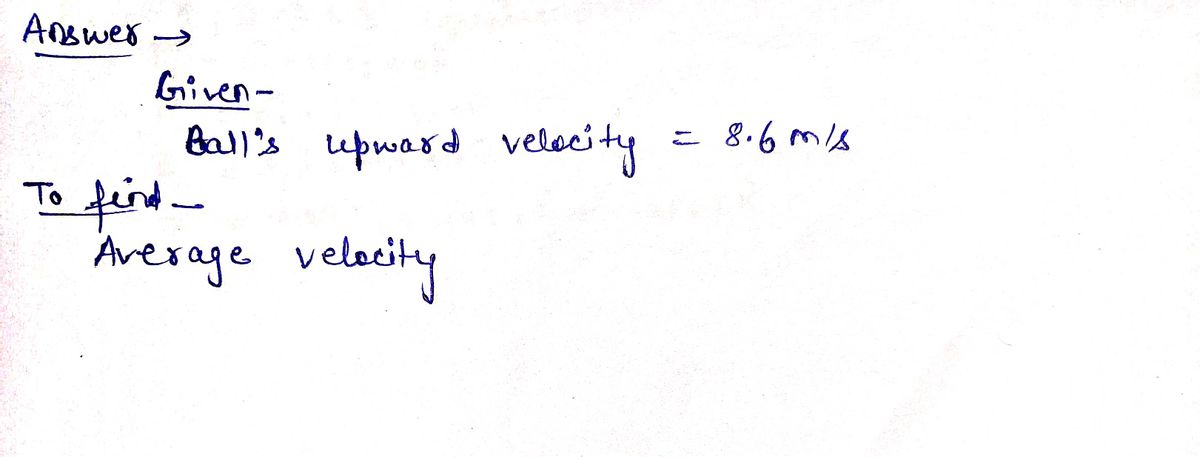 Answer →
Given -
Ball's upward velocity = 8.6 m/s
To find -
Average velocity